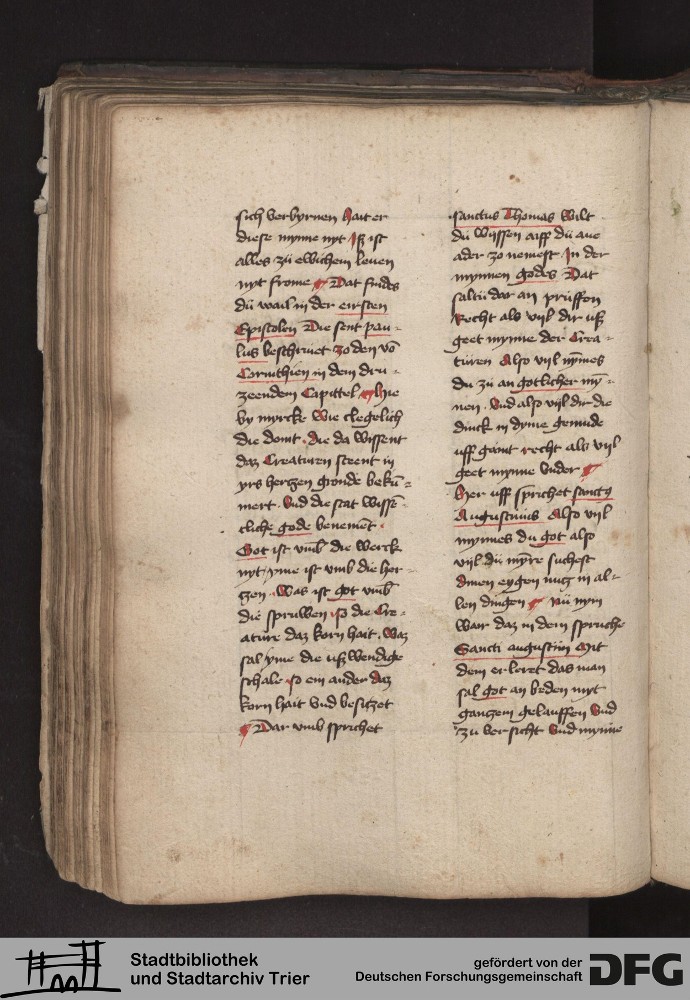 sich verbyrnen hait er
diese mynne nyt · Iß ist
alles zü ewichem leuen
nyt frome Dat findes
dü wail in der eirsten
Epistolen Die sent pau-
lus beschriuet zo den võ
Corinthien in dem dru-
zeendem Capittel Hie
by myrcke wie clegelich
die doint · die da wissent
daz Creaturen steent in
yrs hertzen gronde bekũ-
mert · vnd die stat wissẽ-
cliche gode benemẽt ·
Got ist vmb die werck
nyt / yme ist vmb die her-
tzen · Was ist got vmb
die spruwen · so die Cre-
ature daz korn hait · Waz
sal yme die ußwendige
schale · so ein ander daz
korn hait vnd besitzet
Dar vmb sprichet
sanctus Thomas wilt
dü wissen aiff dü aue
ader zo nemest · In der
mynnen godes Dat
saltu dar an prüffen
Recht als vijl dir uß
geet mynne der Crea-
turen Also vijl nỹmes
du zü an gotlicher mỹ-
nen · Vnd also vijl dir die
dinck in dyme gemude
uff gaint recht als vijl
geet mynne vnder
Her uff sprichet sanctus
Augustinus Also vijl
mynnes du got also
vijl dü mỹre suchest
dinen eygen nutz in al-
len dingen Nü nym
wair daz in dem spruche
Sancti augustini Mit
dem er leret das man
sal got an beden myt
gantzem gelauffen vnd
zu versicht vnd mynne
Stadtbibliothek
und Stadtarchiv Trier
gefördert von der
Deutschen Forschungsgemeinschaft
DFG